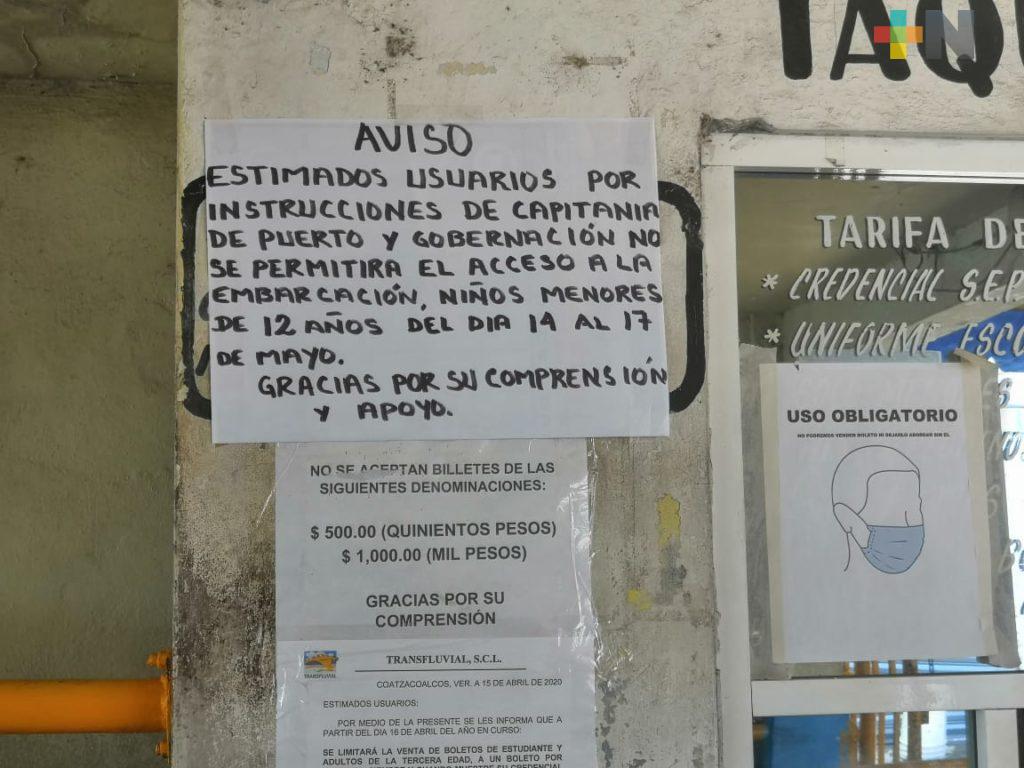 +N
TAQU
AVISO
ESTIMADOS USUARIOS POR
INSTRUCCIONES DE CAPITANIA
DE PUERTO Y GOBERNACIÓN NO
SE PERMITIRA EL ACCESO A LA
EMBARCACIÓN, NIÑOS MENORES
DE 12 AÑOS DEL DIA 14 AL 17
DE MAYO.
GRACIAS POR SU COMPRENSIÓN
Y APOYO.
NO SE ACEPTAN BILLETES DE LAS
SIGUIENTES DENOMINACIONES:
$ 500.00 (QUINIENTOS PESOS)
$ 1,000.00 (MIL PESOS)
GRACIAS POR SU
COMPRENSIÓN
TRANSFLUVIAL
TRANSFLUVIAL, S.C.L.
COATZACOALCOS, VER. A 15 DE ABRIL DE 2020
ESTIMADOS USUARIOS:
POR MEDIO DE LA PRESENTE SE LES INFORMA QUE A
PARTIR DEL DIA 16 DE ABRIL DEL AÑO EN CURSO:
SE LIMITARÁ LA VENTA DE BOLETOS DE ESTUDIANTE Y
ADULTOS DE LA TERCERA EDAD, A UN BOLETO POR
TARIFA DE
* CREDENCIAL S.E.P.
* UNIFORME ESCO
USO OBLIGATORIO
NO PODREMOS VENDER BOLETO NI DEJARLO ABORDAR SIN EL